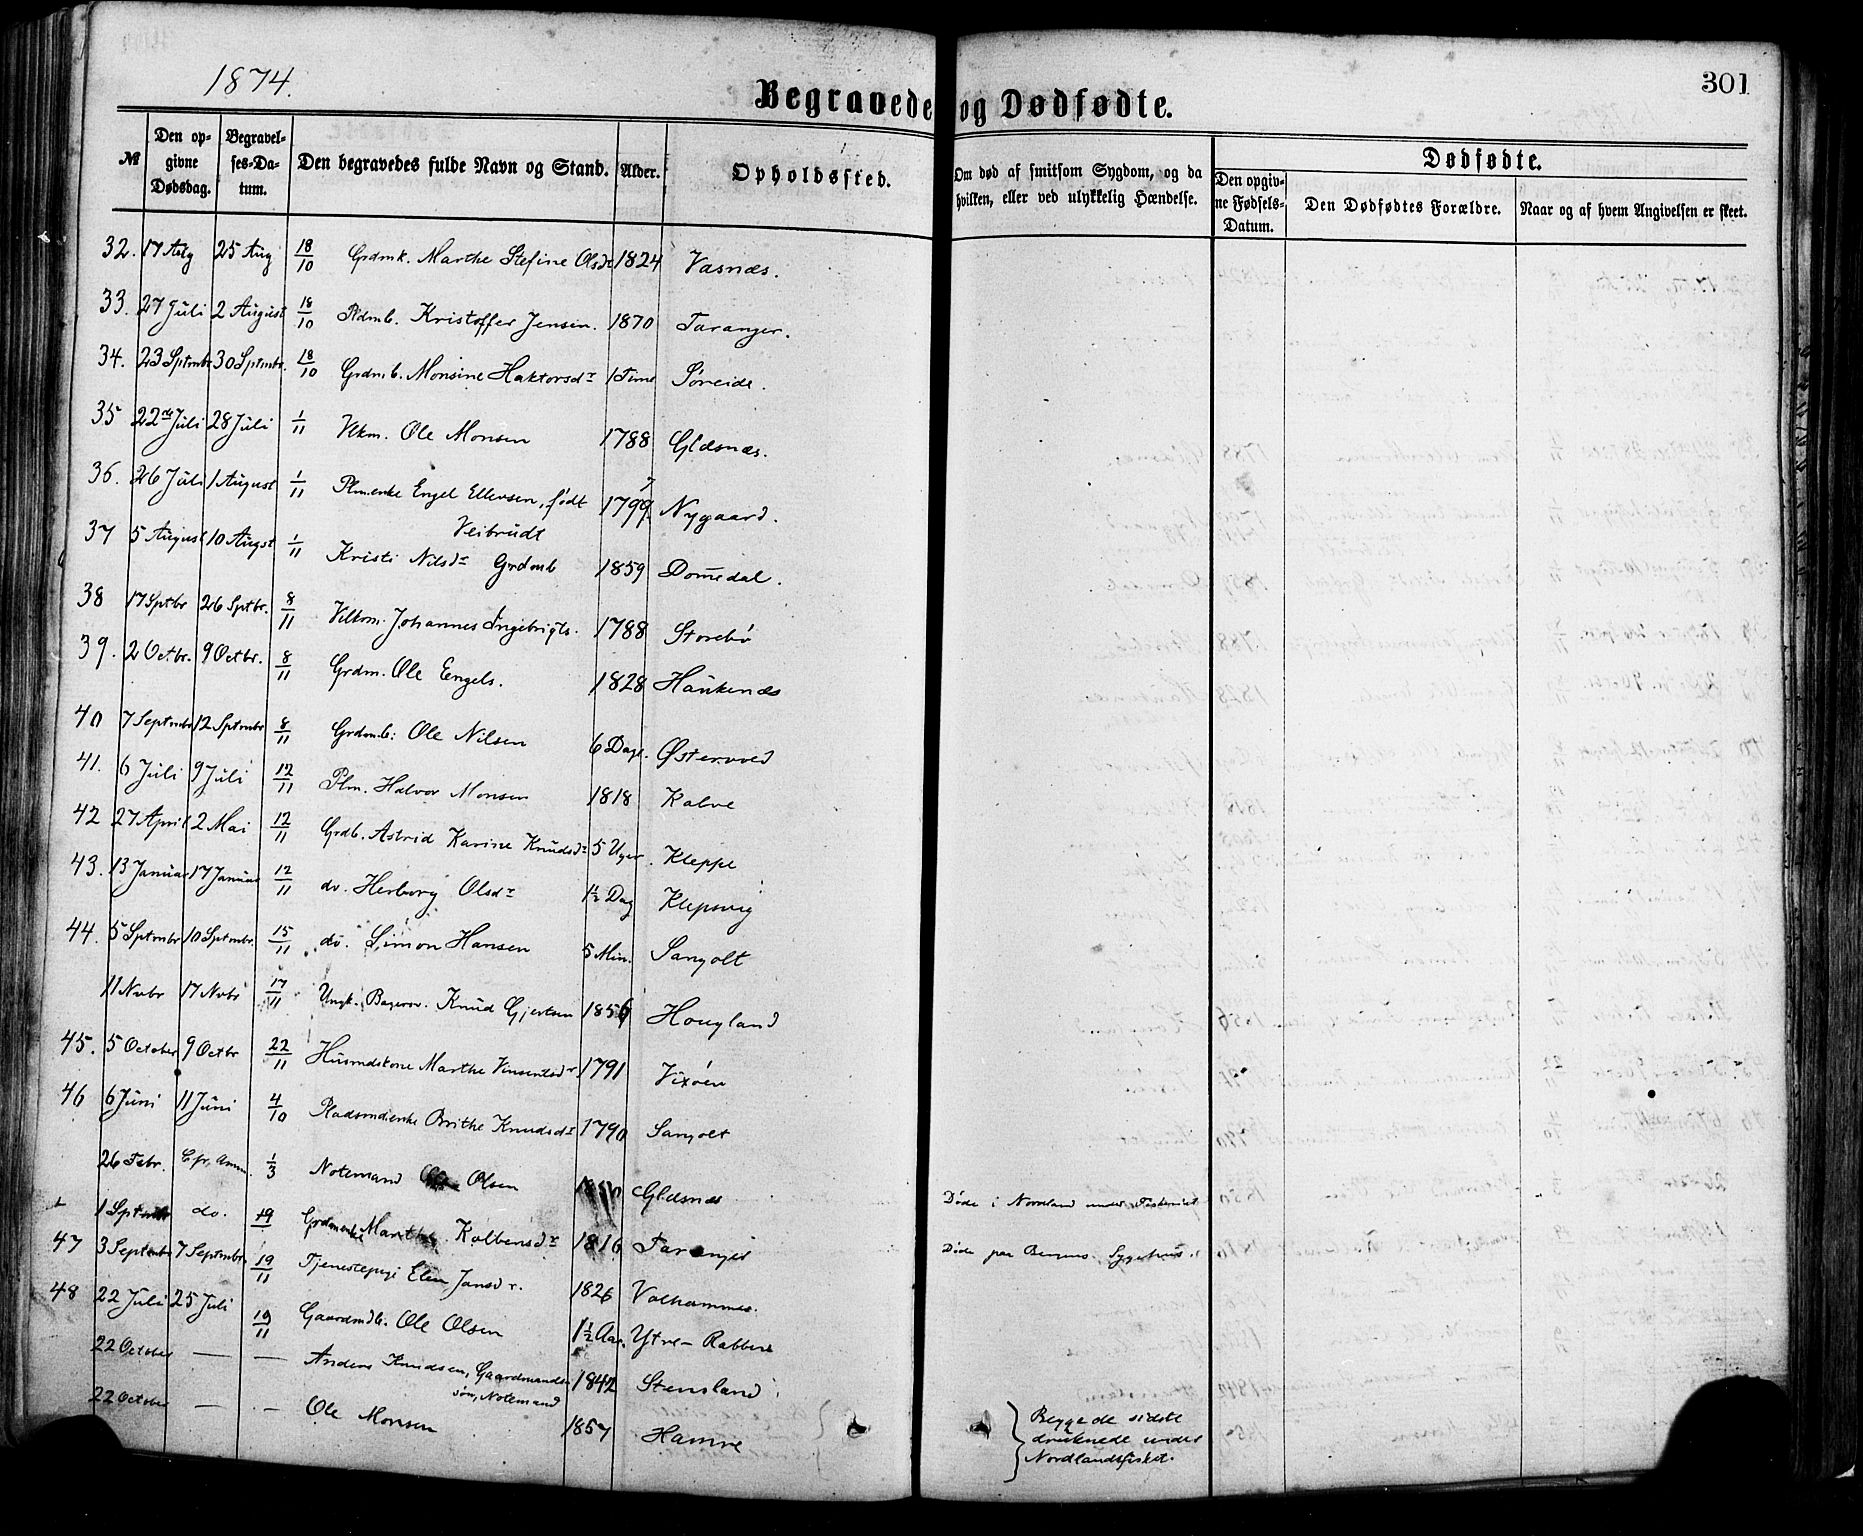 1874.
301
Begravede og Dødfødte.
№ Den opgivne Dødsdag. Begravelses-Datum. Den begravedes fulde Navn og Stand. Alder. Opholdssted. Om død af smitsom Sygdom, og da hvilken, eller ved ulykkelig Hændelse. Dødfødte. Den opgivne Fødsels-Datum. Den Dødfødtes Forældre. Naar og af hvem Angivelsen er skeet.
32. 17 25 Aug 18/10 Grdmk. Marthe Stefine Olsdr 1824 Vasnæs.
33. 27 Juli 2 August 18/10 Kristoffer Jensen. 1870 Taranger.
34. 23 Sptmbr 30 Sptmbr. 18/10 Grdmb. Monsine Haktorsdr 1 Time Søreide.
35 22de Juli 28 Juli 1/11 Vlkm. Ole Monsen 1788 Gldsnæs.
36. 26 Juli 1 August 1/11 Plmenke Engel Ellersen, født 1799 7 Nygaard.
Veibrudt
37 5 August 10 Augst 1/11 Kristi Nilsdr Grdmb 1859 Domedal.
38 17 Sptbr 26 Sptbr. 8/11 Vilkm. Johannes Ingebrigts. 1788 Storebø
39. 2 Octbr. 9 Octbr. 8/11 Grdm. Ole Engels. 1828 Haukenæs
40 7 Septmbr 12 Sptmbr 8/11 Grdmb: Ole Nilsen 6 Dage. Østervold
41. 6 Juli 9 Juli 12/11 Plm. Halvor Monsen 1818 Kalve
42 27 April 2 Mai 12/11 Grdb. Astrid Karine Knudsdr 5 Uger. Kleppe
43. 13 Januar 17 Januar 12/11 do. Herborg Olsdr 1½ Dag Klepsvig
44. 5 Sptmbr 10 Sptmbr. 15/11 do. Simon Hansen 5 Min. Sangolt
11 Nvbr 17 Nvbr 17/11 Ungk. Knud Gjertsen 1856 Hougland
45. 5 October 9 Octbr 22/11 Husmdskone Marthe Vinsentsdr. 1791 Vixøen
46 6 Juni 11 Juni 4/10 Pladsmdienke Brithe Knudsdr 1790 Sangolt
26 Febr. 1/3 Notemand Olsen Gldsnæs Døde i Nordland under Fiskeriet
1 Sptmbr do. 19 Grdmenke Marthe Kolbensdr 1816 Taranger Døde paa Bergens Sygehus.
47 3 Septmbr 7 Septmbr. 19/11 Tjenestepige Elen Jansdr. 1826 Valhammer.
48 22 Juli 25 Juli 19/11 Gaardmdb. Ole Olsen 1½ Aar. Ytre-Rabben
22 October — — Anders Knudsen, Gaardmands 1842 Stensland
søn, Notemand
22 October — — Ole Monsen 1857 Hamre
Begge de sidste
druknede under
Nordlandsfisket.